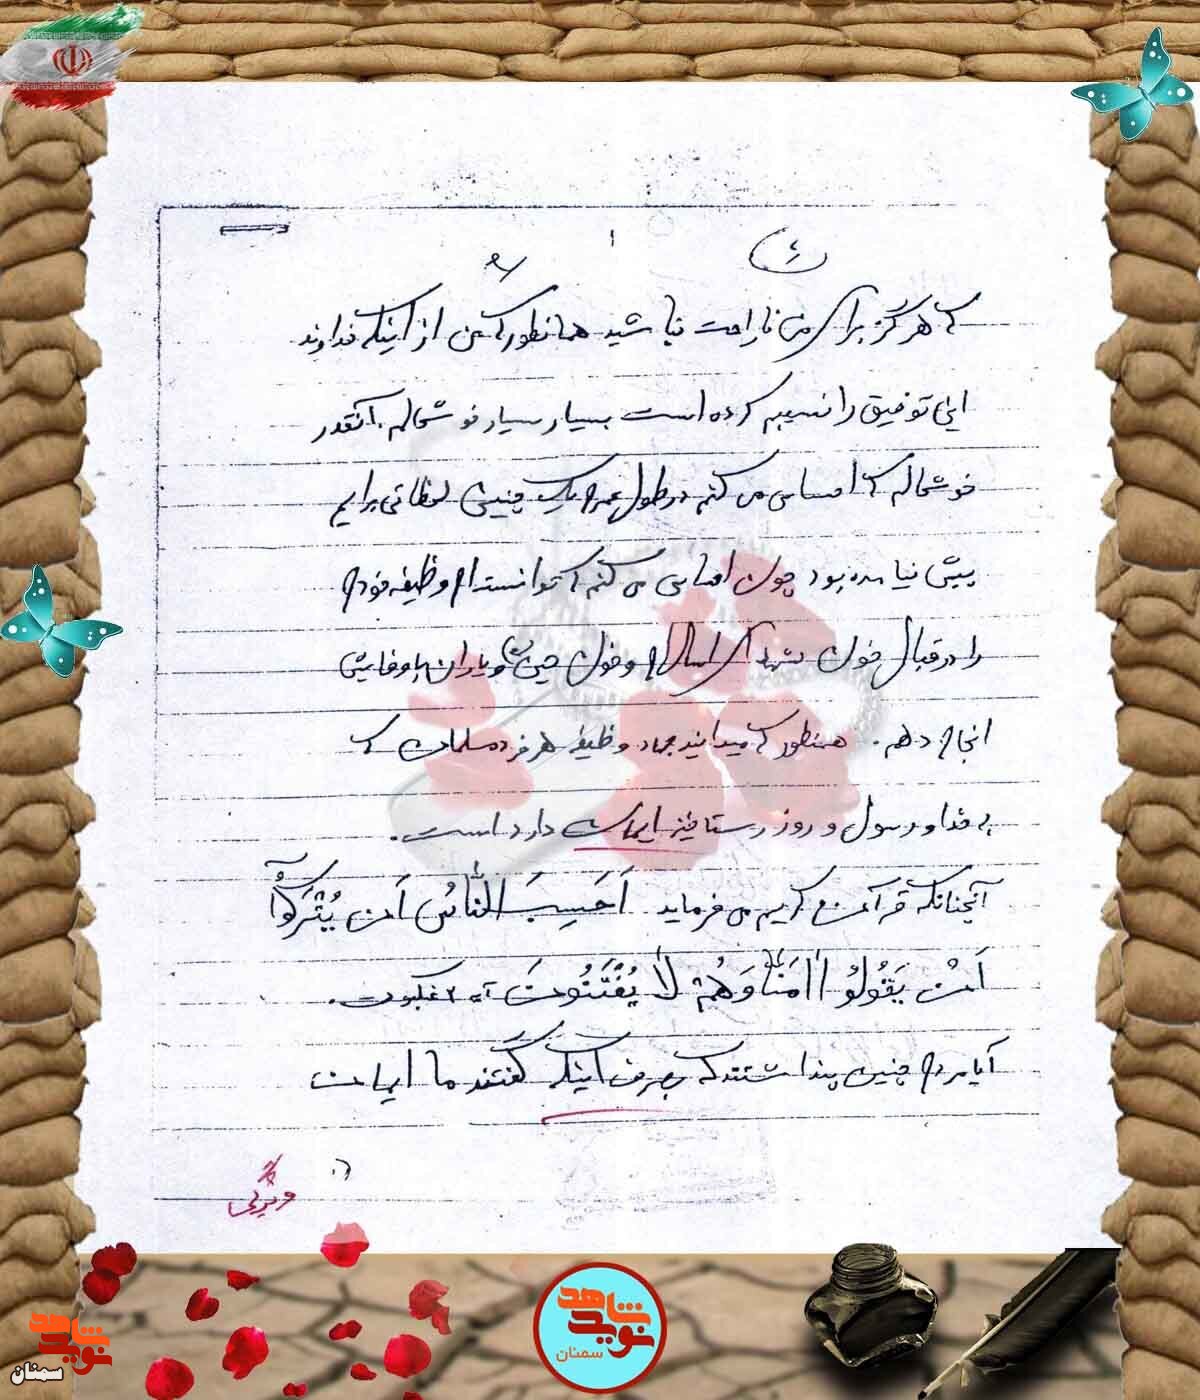 که هرگز برای من ناراحت نباشید همانطور که من از اینکه خداوند
این توفیق را نسیبم کرده است بسیار بسیار خوشحالم. آنقدر
خوشحالم که احساس می کنم در طول عمرم یک چنین لحظاتی برایم
پیش نیامده بود چون احساس می کنم که توانسته ام وظیفه خودم
را در قبال خون شهدای اسلام و خون حسین و یاران باوفایش
انجام دهم. همنطور که میدانید جهاد وظیفه هر فرد مسلمان که
به خدا و رسول و روز رستاخیز ایمان دارد است.
آنچنانکه قرآن کریم می فرماید اَحَسِبَ النّاسُ اَن یُتْرَکُوآ
اَنْ یَقُولُوُا امَنّا وَهُمْ لاٰ یُفْتَنُونَ آیه ۲ عنکبوت.
آیا مردم چنین پنداشتند که بصرف اینکه گفتند ما ایمان
ویژگی
نوید شاهد
سمنان
نوید شاهد
سمنان